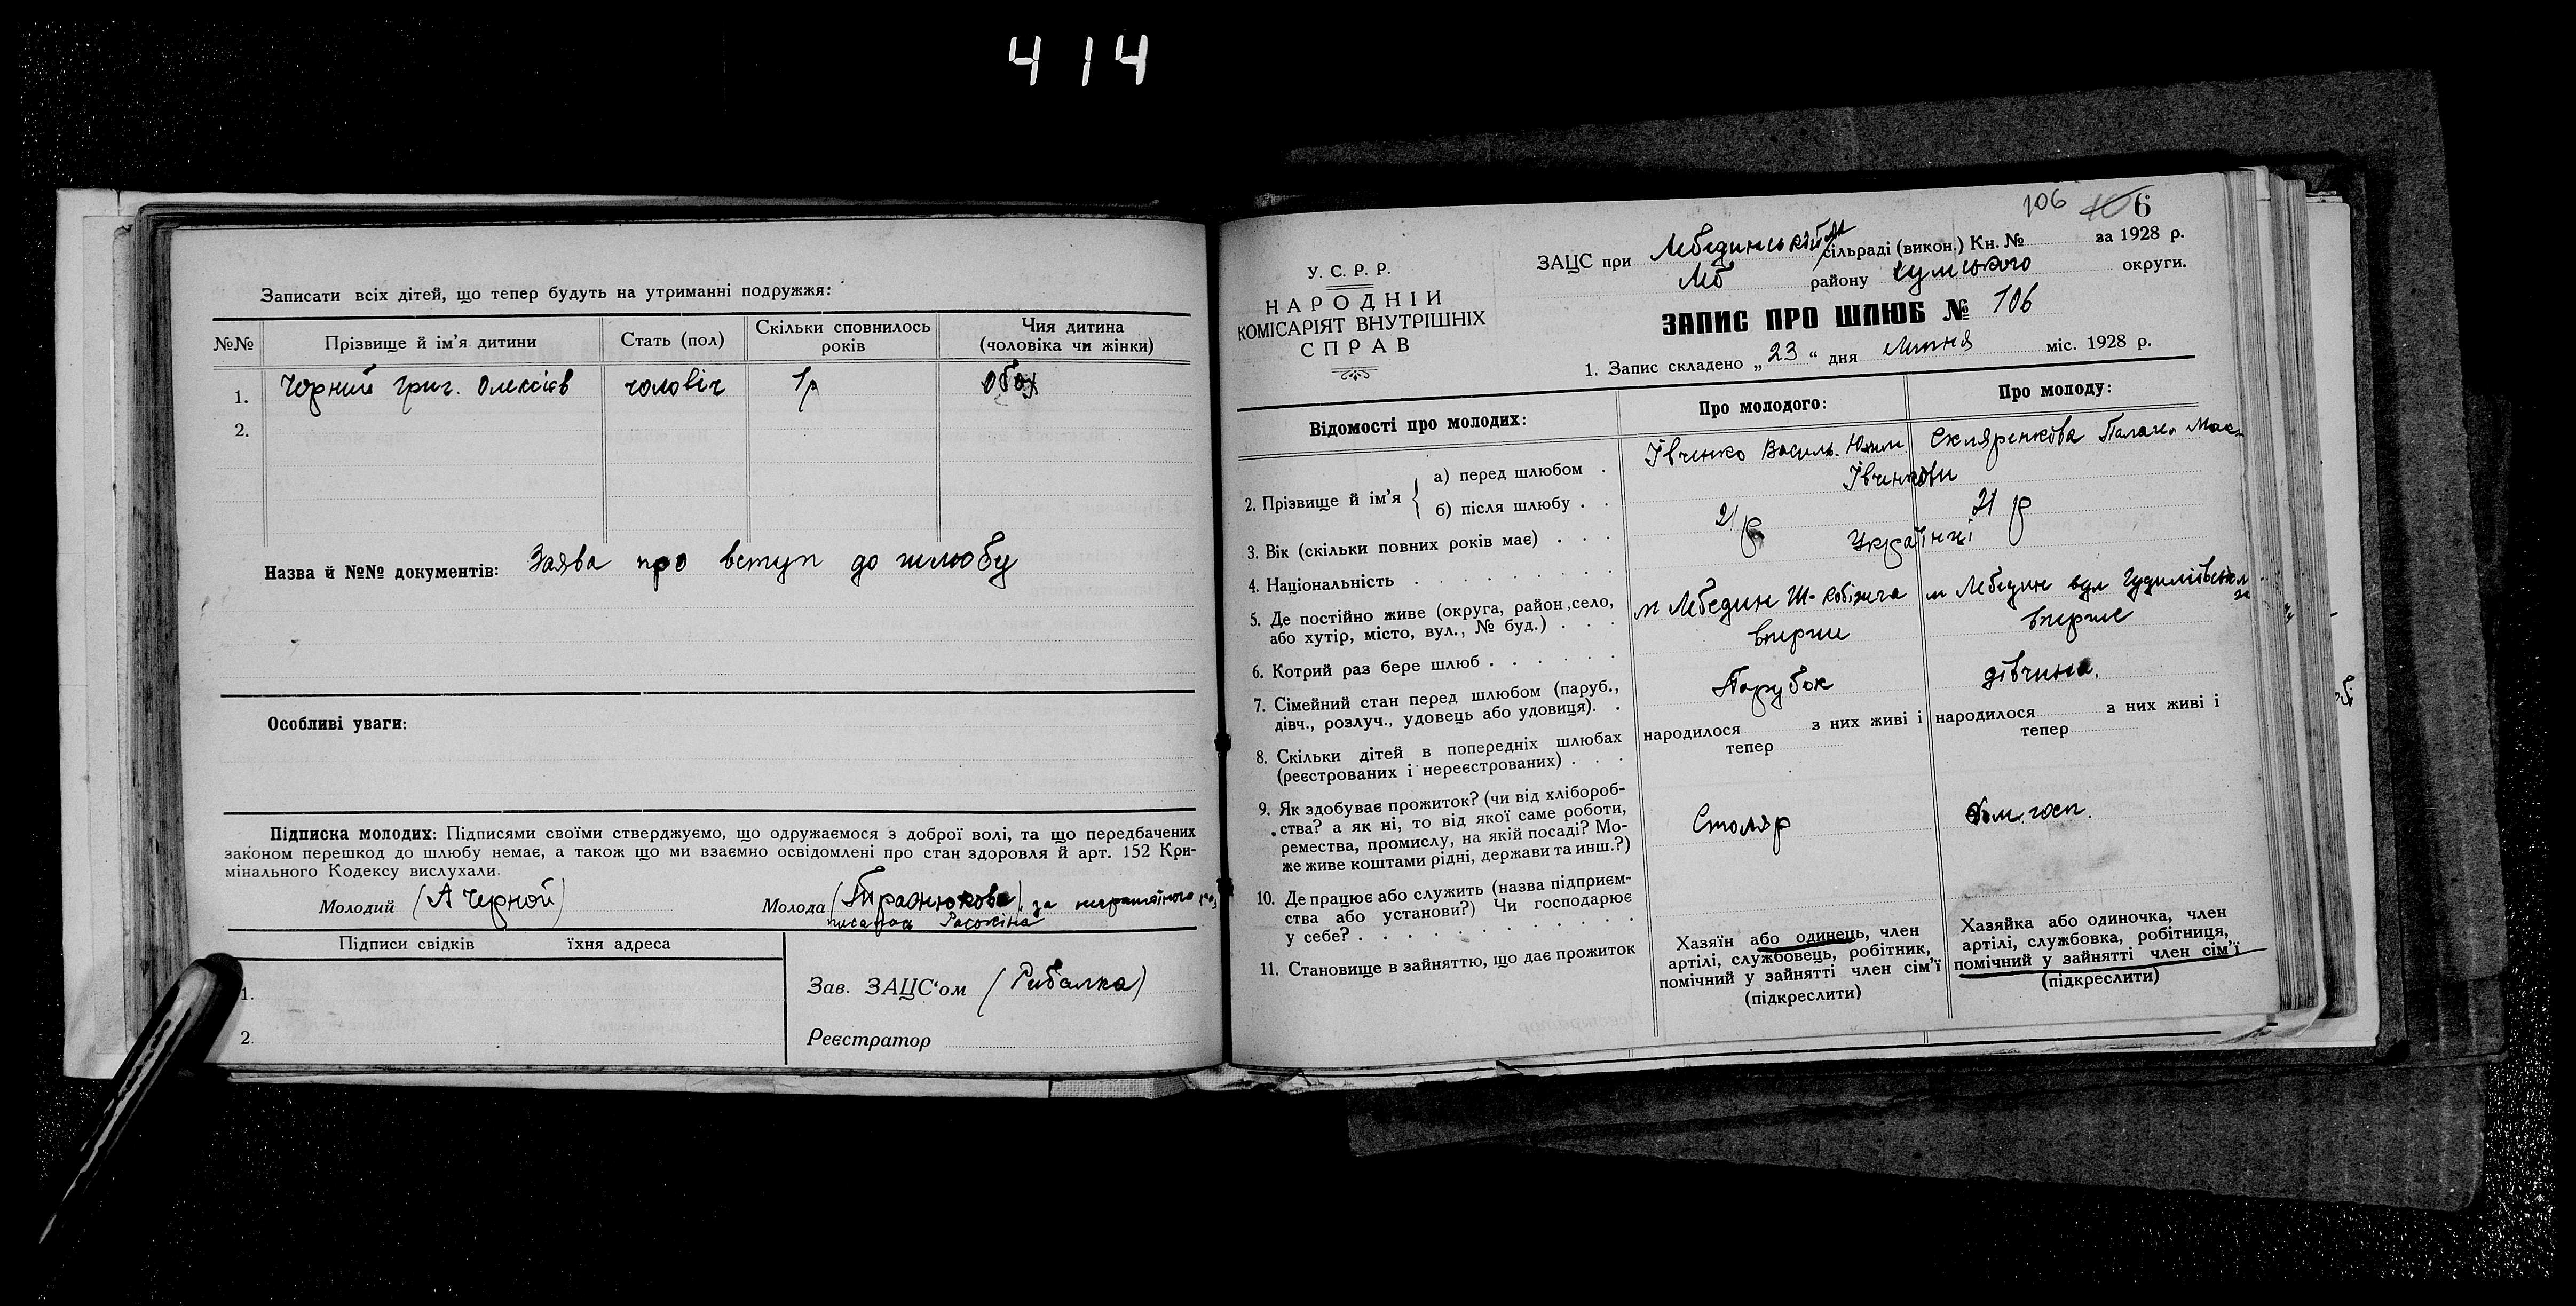 414
Записати всіх дітей, що тепер будуть на утриманні подружжя:
№№ Прізвище й ім'я дитини Стать (пол) Скільки сповнилось років Чия дитина (чоловіка чи жінки)
1. Чорний Григ. Олексієв чоловіч 1р обох
2.
Назва й №№ документів: Заява про вступ до шлюбу
Особливі уваги:
Підписка молодих: Підписями своїми стверджуємо, що одружаємося з доброї волі, та що передбачених
законом перешкод до шлюбу немає, а також що ми взаємно освідомлені про стан здоровля й арт. 152 Кри-
мінального Кодексу вислухали.
Молодий (А Черной) Молода (Траснюкова), за неграмотного
Підписи свідків їхня адреса
1.
2.
Зав. ЗАЦС'ом (Рибалка)
Реєстратор
106 6
У. С. Р. Р.
НАРОДНІЙ
КОМІСАРІЯТ ВНУТРІШНІХ
СПРАВ
ЗАЦС при Лебединській сільраді (викон.) Кн. № за 1928 р.
Леб району Сумського округи.
ЗАПИС ПРО ШЛЮБ № 106
1. Запис складено „ 23 “ дня Липня міс. 1928 р.
Відомості про молодих: Про молодого: Про молоду:
2. Прізвище й ім'я
а) перед шлюбом . Івченко Василь. Юхим. Скляренкова Палаж. Мак
б) після шлюбу . . Івченкови
3. Вік (скільки повних років має) . . . 21 р 21 р
4. Національність . . . . . . . . . Українці
5. Де постійно живе (округа, район, село,
або хутір, місто, вул., № буд.) . . . м Лебедин Ш- Кобижча м Лебедин вул
6. Котрий раз бере шлюб . . . . . . вперше вперше
7. Сімейний стан перед шлюбом (паруб.,
дівч., розлуч., удовець або удовиця). . Парубок дівчина.
8. Скільки дітей в попередніх шлюбах
(реєстрованих і нереєстрованих) . . .
народилося з них живі і
тепер
народилося з них живі і
тепер
9. Як здобуває прожиток? (чи від хлібороб-
ства? а як ні, то від якої саме роботи,
ремества, промислу, на якій посаді? Мо-
же живе коштами рідні, держави та инш.?)
Столяр Дом. госп.
10. Де працює або служить (назва підприєм-
ства або установи?) Чи господарює
у себе? . . . . . . . . . . .
11. Становище в зайняттю, що дає прожиток
Хазяїн або одинець, член
артілі, службовець, робітник,
помічний у зайнятті член сім'ї
(підкреслити)
Хазяйка або одиночка, член
артілі, службовка, робітниця,
помічний у зайнятті член сім'ї
(підкреслити)